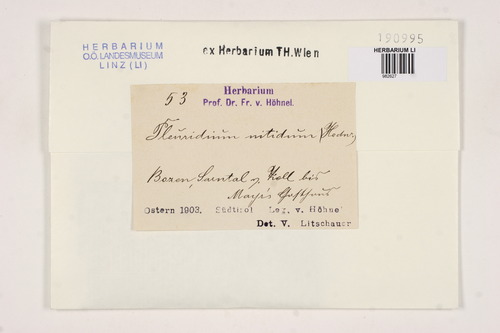 HERBARIUM
O.Ö. LANDESMUSEUM
LINZ (LI)
ex Herbarium TH.Wien
190995
HERBARIUM LI
982627
53
Herbarium
Prof. Dr. Fr. v. Höhnel.
Pleuridium nitidum (Hedw.)
Bozen, Sarntal z. bis
Gasthaus
Ostern 1903. Südtirol Leg. v. Höhnel
Det. V. Litschauer